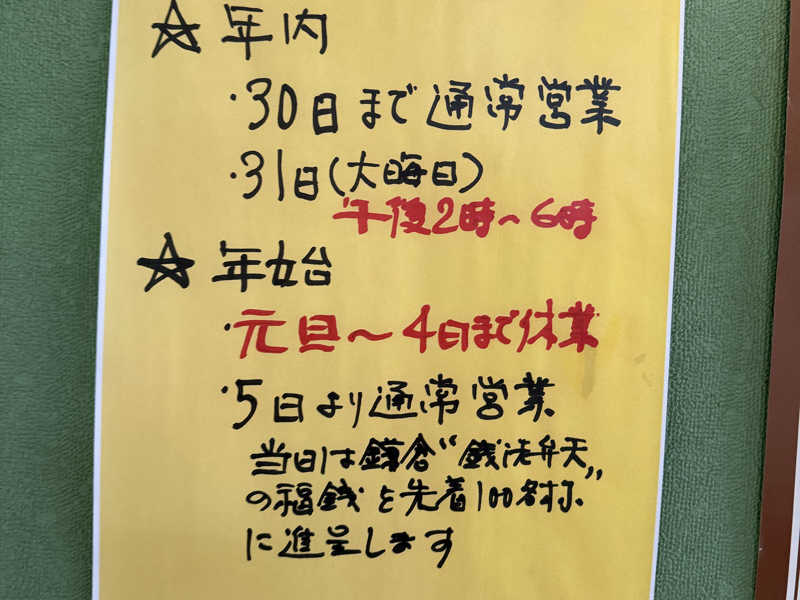 ☆年内
・30日まで通常営業
・31日(大晦日)
午後2時〜6時
☆年始
・元旦〜4日まで休業
・5日より通常営業
当日は鎌倉“銭洗弁天”
の福銭を先着100名様
に進呈します